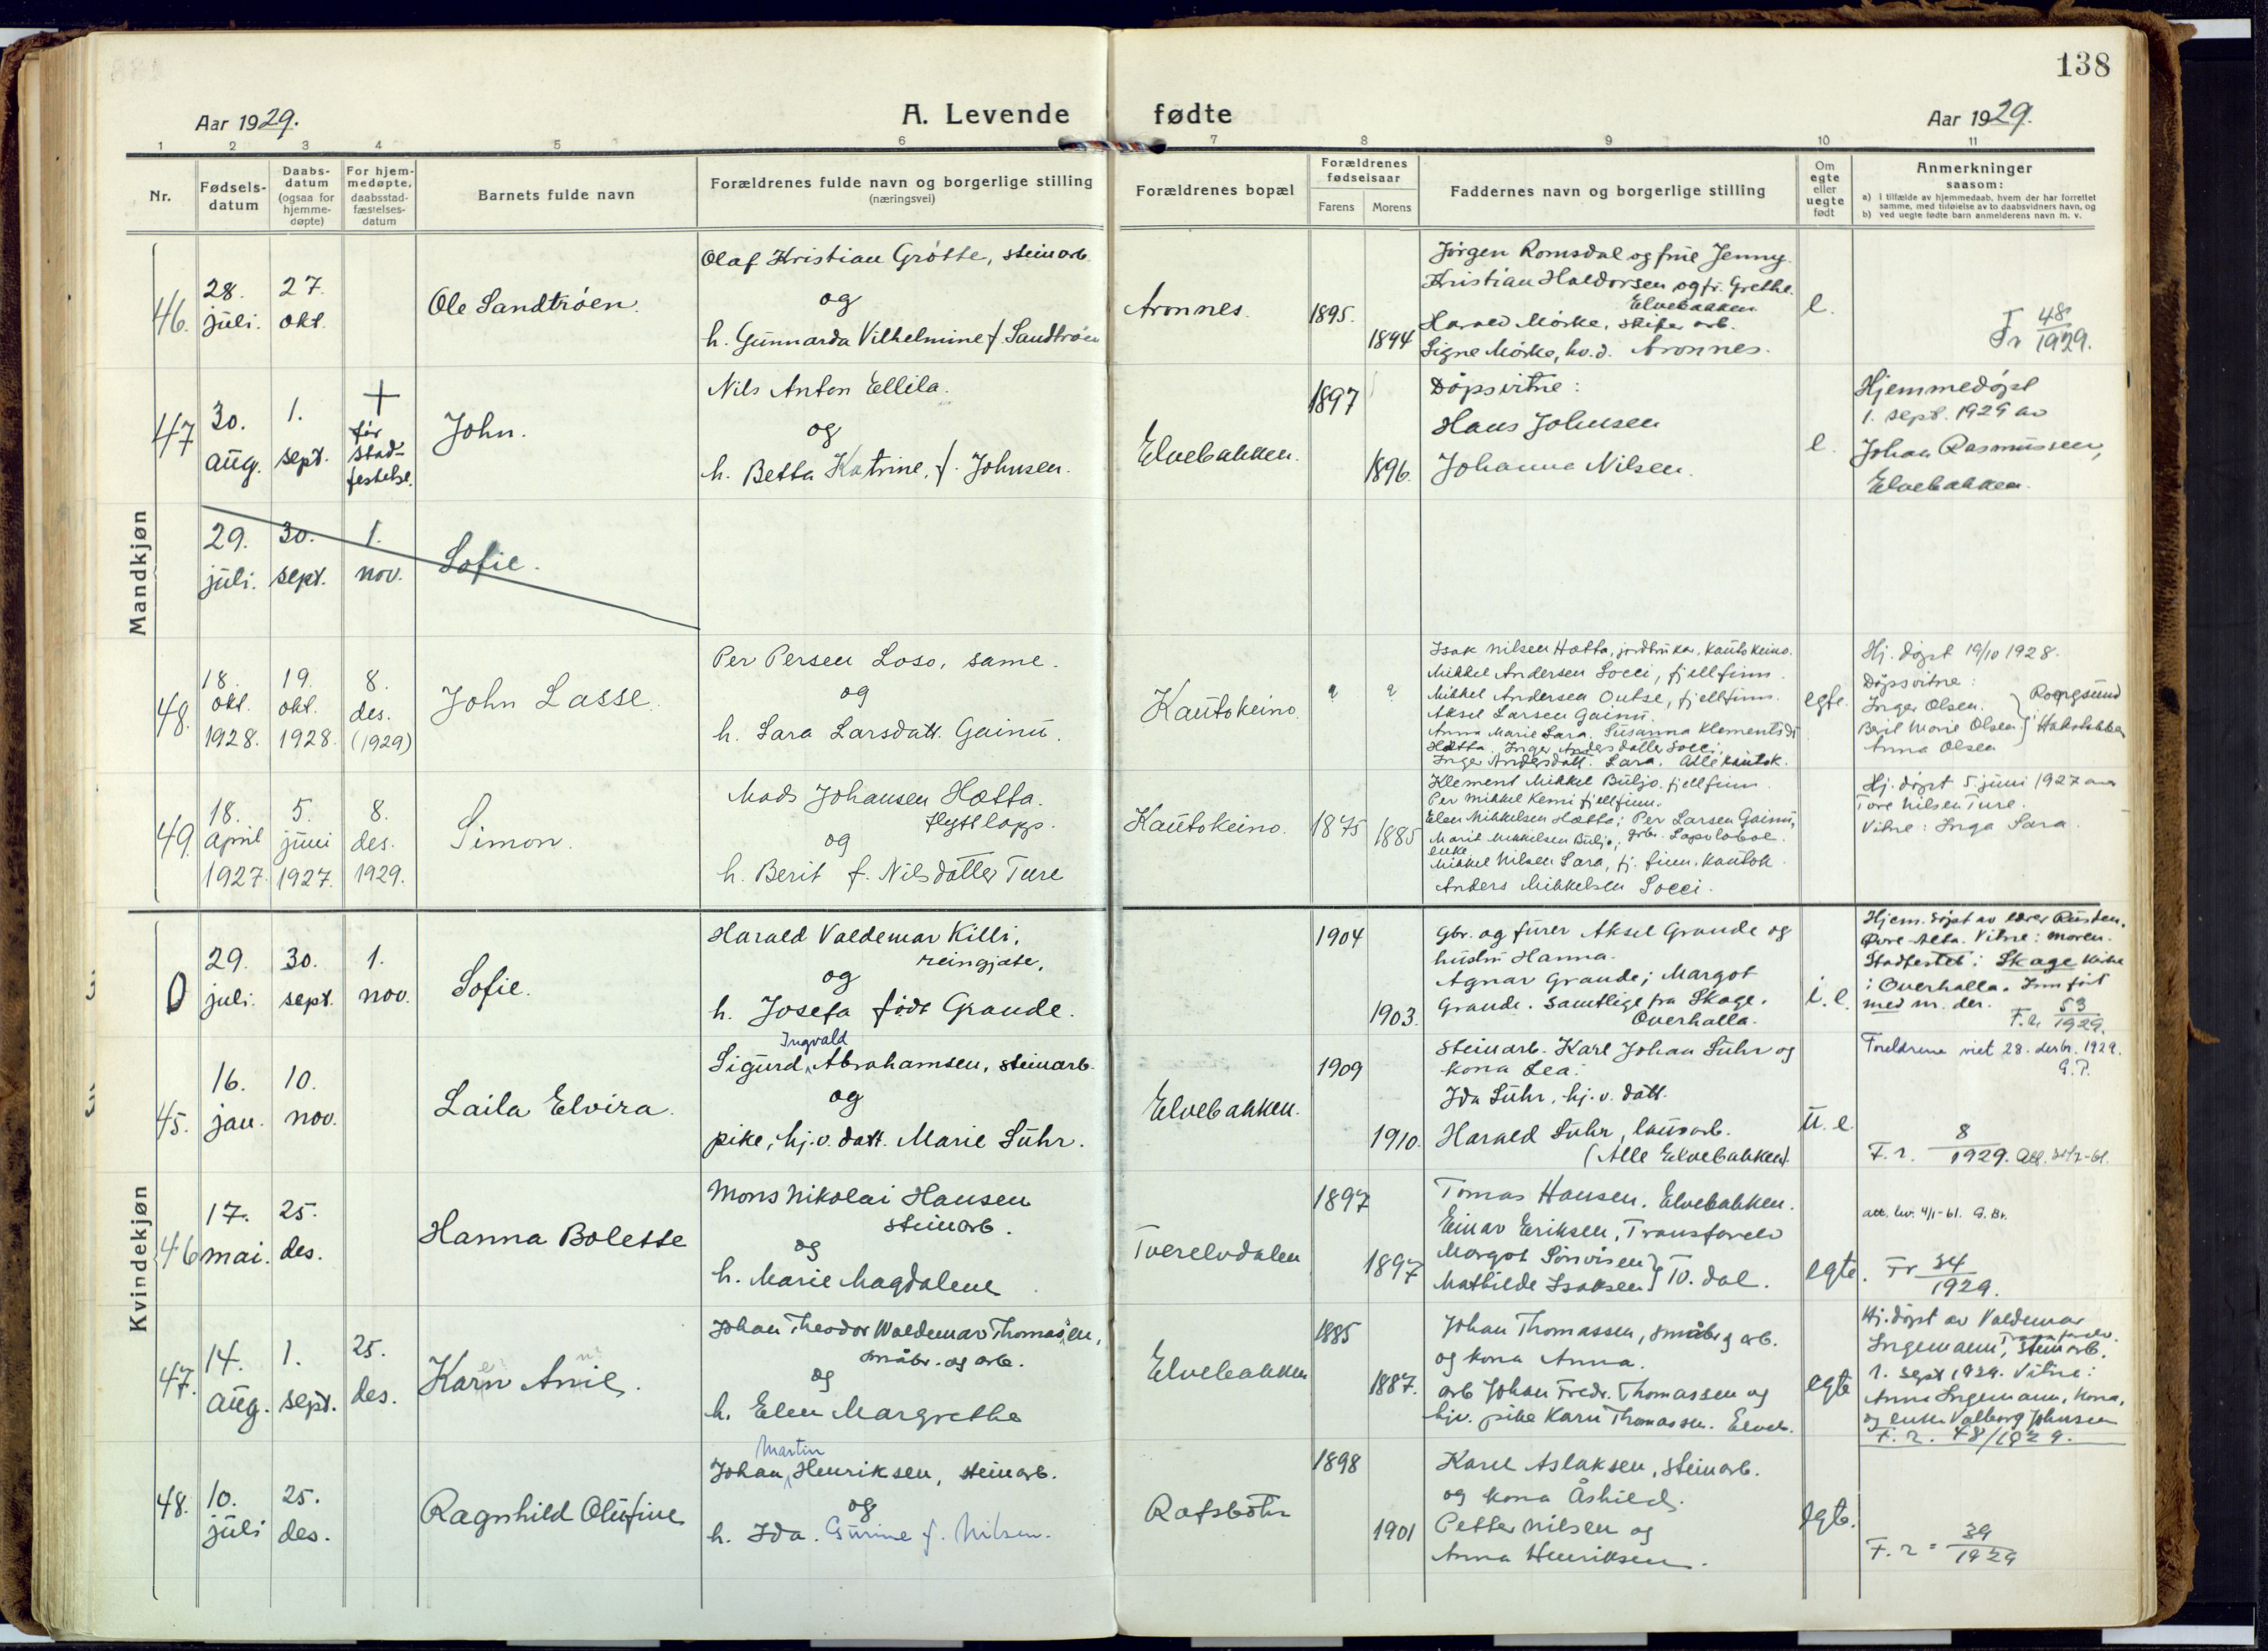 138
Aar 1929.
A. Levende fødte
Aar 1929.
1 2 3 4 5 6 7 8 9 10 11
Nr.
Fødsels-
datum
Daabs-
datum
(ogsaa for
hjemme-
døpte)
For hjem-
medøpte,
daabsstad-
fæstelses-
datum
Barnets fulde navn
Forældrenes fulde navn og borgerlige stilling
(næringsvei)
Forældrenes bopæl
Forældrenes
fødselsaar
Farens
Morens
Faddernes navn og borgerlige stilling
Om
egte
eller
uegte
født
Anmerkninger
saasom:
a) i tilfælde av hjemmedaab, hvem der har forrettet
samme, med tilføielse av to daabsvidners navn, og
b) ved uegte fødte barn anmelderens navn m. v.
Mandkjøn
46.
28.
juli.
27.
okt.
Ole Sandtrøen.
Olaf Kristian Grøtte, steinarb.
og
h. Gunnarda Vilhelmine f. Sandtrøen
Aronnes.
1895.
1894
Jørgen Romsdal og frue Jenny.
Kristian Haldorsen og fr. Grethe.
Elvebakken
Harald Mørke, skifer arb.
Signe Mørke, hv.d. Aronnes.
e.
Fr 48/1929.
47
30.
aug.
1.
sept.
+
før
stad-
festelse.
John.
Nils Anton Ellila.
og
h. Betta Katrine, f. Johnsen.
Elvebakken.
1897
1896.
Døpsvitne:
Hans Johnsen
Johanne Nilsen.
e.
Hjemmedøpt
1. sept. 1929 av
Johan Rasmussen,
Elvebakken.
29.
juli.
30.
sept.
1.
nov.
Sofie.
48.
18.
okt.
1928.
19.
okt.
1928.
8.
des.
(1929)
John Lasse.
Per Persen Loso, same.
og
h. Sara Larsdatt. Gainu.
Kautokeino.
?
?
Isak Nilsen Hætta, jordbruker, Kautokeino.
Mikkel Andersen Socci, fjellfinn.
Mikkel Andersen Outse, fjellfinn.
Aksel Larsen Gainu.
Anna Marie Sara. Susanna Klementsdt
Hætta. Inger Andersdatter Socci.
Inger Andersdatt. Sara. Alle kautok.
egte.
Hj. døpt 19/10 1928.
Døpsvitne:
Inger Olsen.
Beril Marie Olsen.
Anna Olsen
49.
18.
april
1927.
5.
juni
1927.
8.
des.
1929.
Simon.
Mads Johansen Hætta.
flyttlapp.
og
h. Berit f. Nilsdatter Ture
Kautokeino.
1875
1885
Klement Mikkel Buljo. fjellfinn.
Per Mikkel Kemi fjellfinn.
Elen Mikkelsen Hætta; Per Larsen Gainu,
Marit Mikkelsen Buljo,
enke
Mikkel Nilsen Sara, fj. finn. Kautok.
Anders Mikkelsen Socci.
Hj. døpt 5. juni 1927 av
Tore Nilsen Ture.
Vitne: Inga Sara.
Kvindekjøn
0
29.
juli.
30.
sept.
1.
nov.
Sofie.
Harald Valdemar Killi,
reingjæte,
og
h. Josefa født Grande.
1904
1903.
Gbr. og furer Aksel Grande og
hustru Hanna.
Agnar Grande; Margot
Grande. Samtlige fra Skage.
Overhalla.
i. e.
Hjem. døpt av lærer Rusten,
Øvre Alta. Vitne: moren.
Stadfestet i Skage kirke
i Overhalla. Innført
med nr. der.
F.r. 53/1929.
45.
16.
jan.
10.
nov.
Laila Elvira.
Ingvald
Sigurd, Abrahamsen, steinarb.
og
pike, hj.v. datt. Marie Suhr.
Elvebakken.
1909
1910.
Steinarb. Karl Johan Suhr og
kona Lea.
Ida Suhr, hj.v. datt.
Harald Suhr, lausarb.
(Alle Elvebakken).
u. e.
Foreldrene viet 28. desbr. 1929.
G.P.
F. r. 8/1929.
46
17.
mai.
25.
des.
Hanna Bolette
Mons Nikolai Hansen
steinarb.
og
h. Marie Magdalene
Tverelvdalen
1897
1897
Tomas Hansen. Elvebakken.
Einar Eriksen, Transfarelv
Margot Sørvisen
Mathilde Isaksen } Tv. dal.
egte.
att. liv. 4/1-61. G. Br.
Fr 34/1929.
47.
14.
aug.
1.
sept.
25.
des.
Karn Anie.
Johan Theodor Waldemar Thomassen,
småbr. og arb.
og
h. Elen Margrethe
Elvebakken
1885
1887.
Johan Thomassen, småbr. og arb.
og kona Anna.
arb Johan Fredr. Thomassen og
hjv. pike Karn Thomassen. Elveb.
egte
Hj. døpt av Valdemar
Ingemann, Transfarelv. steinarb.
1. sept 1929. Vitne:
Anna Ingemann, kona,
og enken Valborg Johnsen
F. r. 48/1929.
48.
10.
juli
25.
des.
Ragnhild Olufine
Martin
Johan, Henriksen, steinarb.
og
h. Ida. Gurine f. Nilsen.
Rafsbotn
1898
1901
Karl Aslaksen, steinarb.
og kona Åshild.
Petter Nilsen og
Anna Henriksen.
egte.
F. r = 39/1929